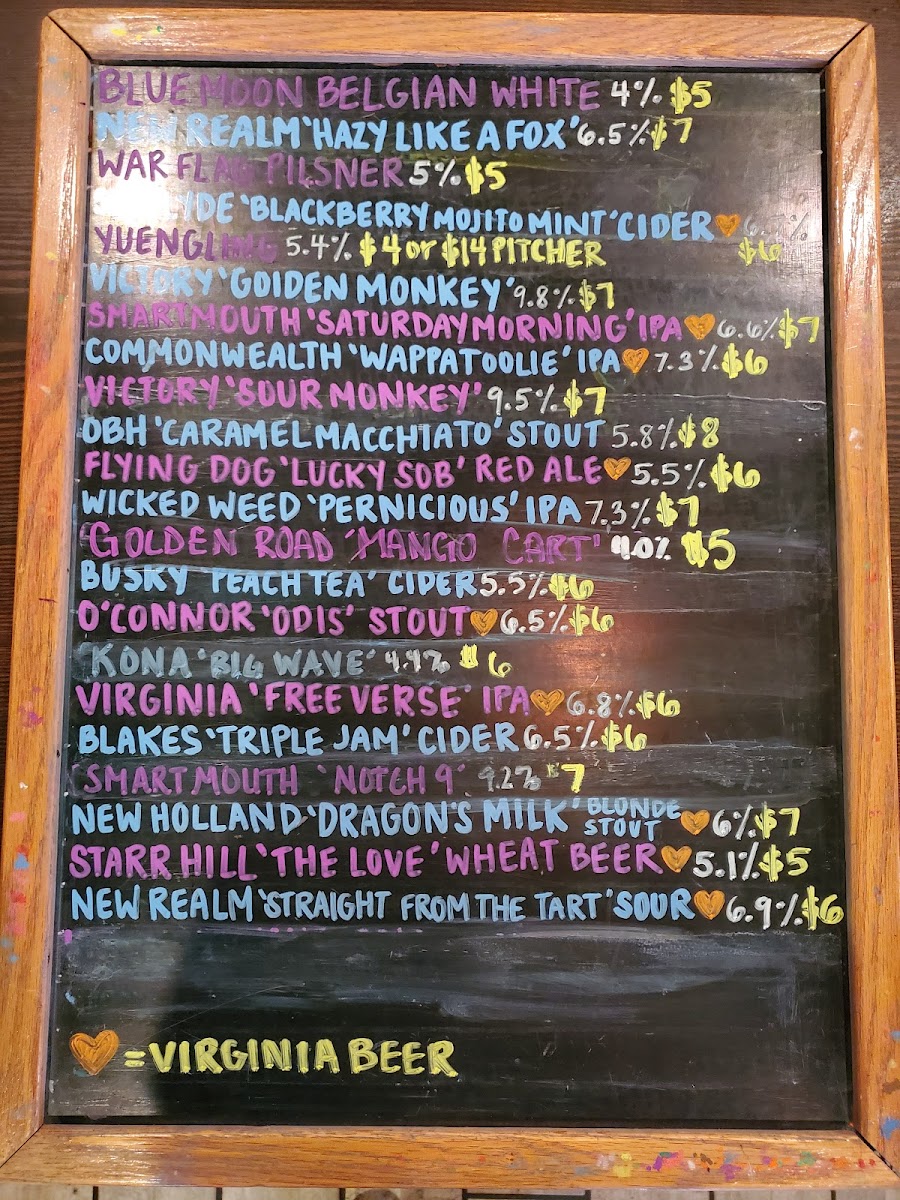 BLUE MOON BELGIAN WHITE 4% $5
NEW REALM 'HAZY LIKE A FOX' 6.5% $7
WAR FLAG PILSNER 5% $5
'BLACKBERRY MOJITO MINT' CIDER
$6
YUENGLING 5.4% $4 or $14 PITCHER
VICTORY 'GOIDEN MONKEY' 9.8% $7
SMARTMOUTH 'SATURDAY MORNING' IPA 6.6% $7
COMMONWEALTH 'WAPPATOOLIE' IPA 7.3% $6
VICTORY 'SOUR MONKEY' 9.5% $7
OBH 'CARAMEL MACCHIATO' STOUT 5.8% $8
FLYING DOG 'LUCKY SOB' RED ALE 5.5% $6
WICKED WEED 'PERNICIOUS' IPA 7.3% $7
GOLDEN ROAD 'MANGO CART' 4.0% $5
BUSKY 'PEACH TEA' CIDER 5.5% $6
O'CONNOR 'ODIS' STOUT 6.5% $6
KONA 'BIG WAVE' 4.4% $6
VIRGINIA 'FREE VERSE' IPA 6.8% $6
BLAKES 'TRIPLE JAM' CIDER 6.5% $6
SMARTMOUTH 'NOTCH 9' 9.2% $7
NEW HOLLAND 'DRAGON'S MILK' BLONDE STOUT 6% $7
STARR HILL 'THE LOVE' WHEAT BEER 5.1% $5
NEW REALM 'STRAIGHT FROM THE TART' SOUR 6.9% $6
= VIRGINIA BEER